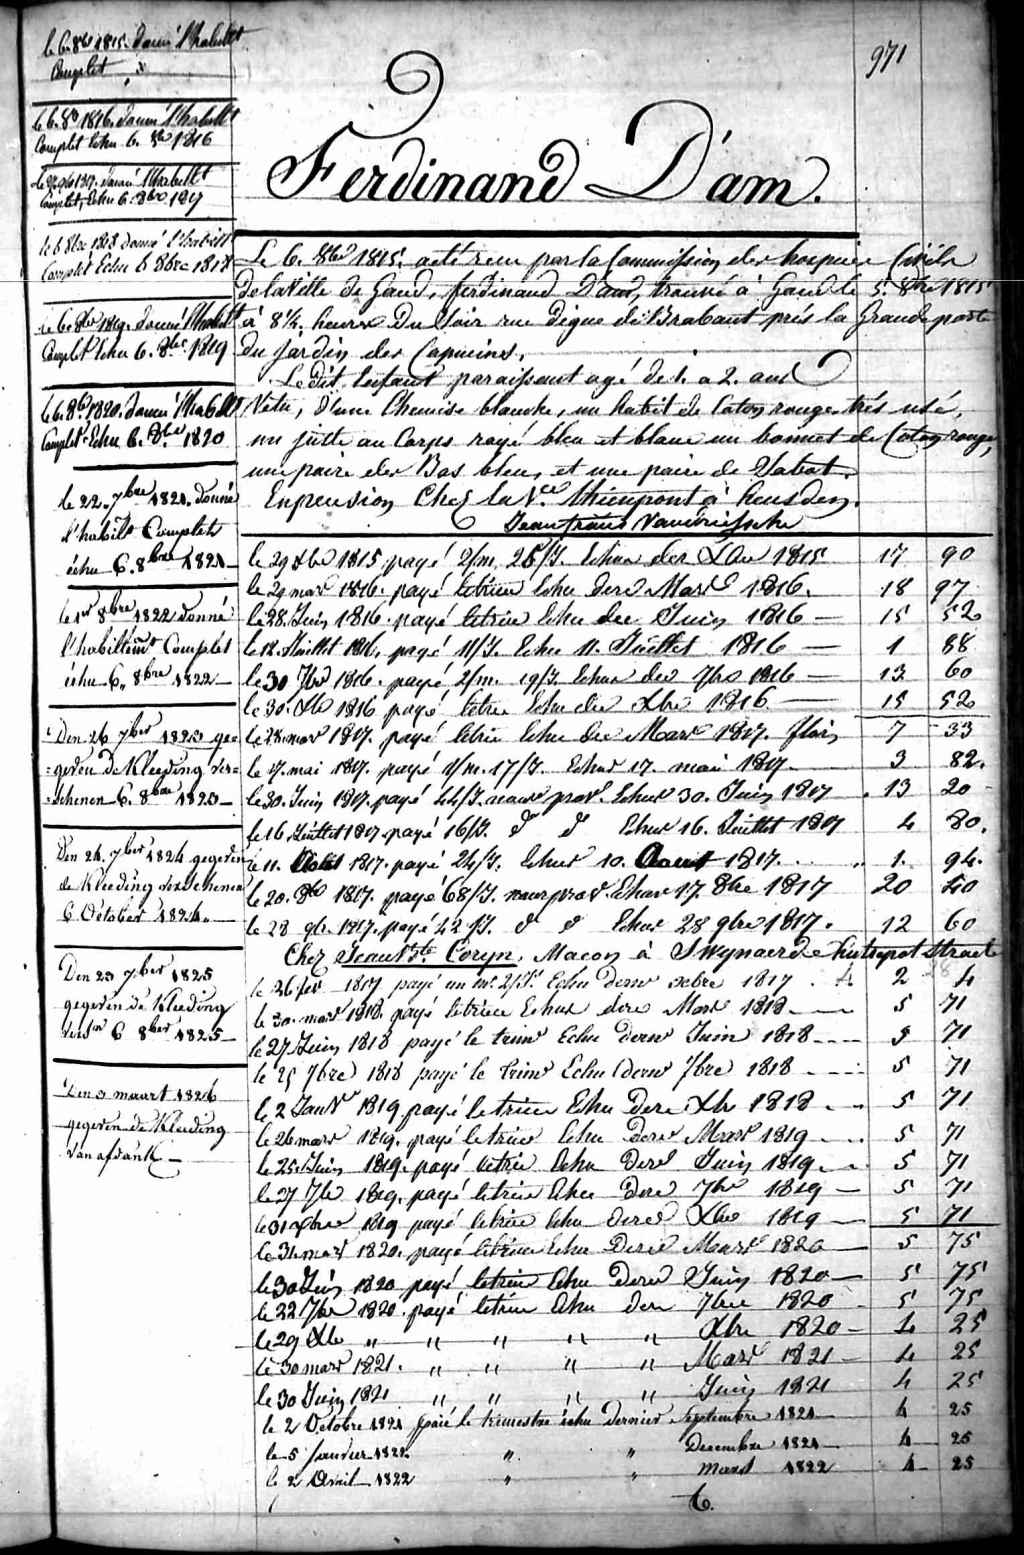 971
Ferdinand D'am.
le 6. 8bre 1815. donné l'habillt
Complet
le 6. 8b 1816. donné l'habillt
Complet Echu 6. 8bre 1816
donné l'habillt
Complet, Echu 6. 8bre 1817
le 6 8bre 1818 donné l'habillt
Complet Echu 6 8bre 1818
le 6 8bre 1819. donné l'habillt
Complet Echu 6. 8bre 1819
le 6. 8bre 1820. donné l'habillt
Complet Echu 6. 8bre 1820
le 22. 7bre 1821. donné
l'habilt Complets
échu 6. 8bre 1821
le 1er 8bre 1822 donné
l'habillemt Complet
échu 6,, 8bre 1822
Den 26 7ber 1823 ge-
=geven de Kleeding ver=
=schenen 6. 8ber 1823
Den 24. 7ber 1824 gegeven
de Kleeding verschenen
6 October 1824.
Den 23 7ber 1825
gegeven de Kleeding
versn 6 8ber 1825
Den 3 maart 1826
gegeven de Kleeding
van afdank
Le 6. 8bre 1815. acté reçu par la Commission des hospices Civils
de la Ville de Gand, ferdinand D'am, trouvé à Gand le 5. 8bre 1815
à 8 1/2. heures Du Soir rue Digue de Brabant prés la Grande porte
du Jardin des Capucins.
Le dit Enfant paraissent agé de 1. a 2. ans
Vetu, D'une Chemise blanche, un habit de Coton rouge très usé,
un juste au Corps rayé bleu et blanc un bonnet de Coton rouge,
une paire des Bas bleu, et une paire de Sabot.
En pension Chez la Ve. Thienpont à heusden.
Jean francs
le 29 Xbre 1815 payé 2/m. 26/J. Echu der Xbre 1815 17 90
le 29 mars 1816. payé letrim Echu dere Mars 1816. 18 97
le 28. Juin 1816. payé letrim Echu der Juin 1816 15 52
le 12. Juillet 1816, payé 11/J. Echu 11. Juillet 1816 1 88
le 30 7bre 1816. payé, 2/m. 19/J. Echu der 7bre 1816 13 60
le 30. Xbre 1816 payé letrim Echu der Xbre 1816 15 52
le 28 mars 1817. payé letrim Echu der Mars 1817. flois 7 33
le 17. mai 1817. payé 1/m. 17/J. Echus 17. mai 1817 3 82.
le 30. Juin 1817. payé 44/J. nouv prov. Echus 30. Juin 1817 13 20
le 16 Juillet 1817. payé 16/J. do do Echus 16. Juillet 1817 4 80.
le 11. Aout 1817. payé 24/J. Echus 10. Aout 1817. 1. 94.
le 20. 8bre 1817. payé 68/J. nouv prov. Echus 17. 8bre 1817 20 40
le 28 9bre. 1817. payé 42/J. do do Echus 28 9bre 1817. 12 60
Chez Jean Bte Coryn, Macon à Swynaerde hutsepot Straete
le 26 fev 1818 payé un m. 2/J. Echu derne xbre 1817 . 2 4
le 30. mars 1818. payé letrim Echus dere Mars 1818 5 71
le 27 Juin 1818 payé le trim Echu derne Juin 1818 5 71
le 25 7bre 1818 payé le trim Echu derne 7bre 1818 5 71
le 2 Janv 1819 payé letrim Echu dere Xbr 1818 5 71
le 26 mars 1819. payé letrim Echu dere Mars 1819 5 71
le 25 Juin 1819. payé letrim Echu dere Juin 1819. 5 71
le 27 7br 1819. payé letrim Echu dere 7bre 1819 5 71
le 31 xbre 1819 payé letrim Echu dere Xbre 1819 5 71
le 31 mars 1820. payé letrim Echu dere Mars 1820 5 75
le 30 Juin 1820 payé letrim Echu dere Juin 1820 5 75
le 22 7bre 1820. payé letrim Echu der 7bre 1820 5 75
le 29 Xbr ,, ,, ,, ,, ,, Xbre 1820 4 25
le 30 mars 1821. ,, ,, ,, ,, Mars 1821 4 25
le 30 Juin 1821 ,, ,, ,, ,, Juin 1821 4 25
le 2 Octobre 1821 payé le trimestre échu dernier Septembre 1821 4 25
le 5 Janvier 1822 ,, ,, Decembre 1821 4 25
le 2 Avril 1822 ,, ,, mars 1822 4 25